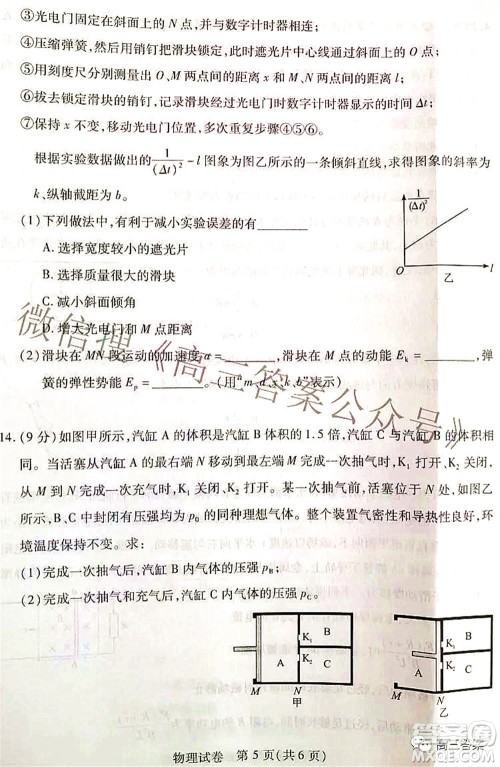 ③光电门固定在斜面上的 N 点，并与数字计时器相连；
④压缩弹簧，然后用销钉把滑块锁定，此时遮光片中心线通过斜面上的 O 点；
⑤用刻度尺分别测量出 O、M 两点间的距离 x 和 M、N 两点间的距离 l；
⑥拔去锁定滑块的销钉，记录滑块经过光电门时数字计时器显示的时间 Δt；
⑦保持 x 不变，移动光电门位置，多次重复步骤④⑤⑥。
根据实验数据做出的 1/(Δt)² - l 图象为图乙所示的一条倾斜直线，求得图象的斜率为
k、纵轴截距为 b。
(1) 下列做法中，有利于减小实验误差的有
A. 选择宽度较小的遮光片
B. 选择质量很大的滑块
C. 减小斜面倾角
D. 增大光电门和 M 点距离
1/(Δt)²
O
l
乙
(2) 滑块在 MN 段运动的加速度 a = ，滑块在 M 点的动能 Eₖ = ，弹
簧的弹性势能 Eₚ = 。(用“m、d、x、k、b”表示)
14. (9 分) 如图甲所示，汽缸 A 的体积是汽缸 B 体积的 1.5 倍，汽缸 C 与汽缸 B 的体积相
同。当活塞从汽缸 A 的最右端 N 移动到最左端 M 完成一次抽气时，K₁ 打开、K₂ 关闭，
从 M 到 N 完成一次充气时，K₁ 关闭、K₂ 打开。某次抽气前，活塞位于 N 处，如图乙
所示，B、C 中封闭有压强均为 p₀ 的同种理想气体。整个装置气密性和导热性良好，环
境温度保持不变。求：
(1) 完成一次抽气后，汽缸 B 内气体的压强 p_B；
(2) 完成一次抽气和充气后，汽缸 C 内气体的压强。
A
B
C
K₁
K₂
M
N
甲
A
B
C
K₁
K₂
M
N
乙
物理试卷 第 5 页(共 6 页)
微信搜《高三答案公众号》
高三答案